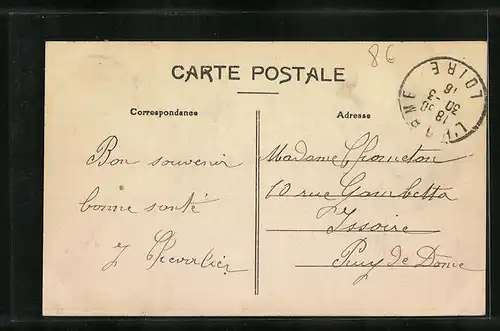 86
CARTE POSTALE
Correspondance
Adresse
LOIRE
18 30
30 -3
16
Bon souvenir
bonne santé
J Chevalier
Madame Chometon
10 rue Gambetta
Issoire
Puy de Dome